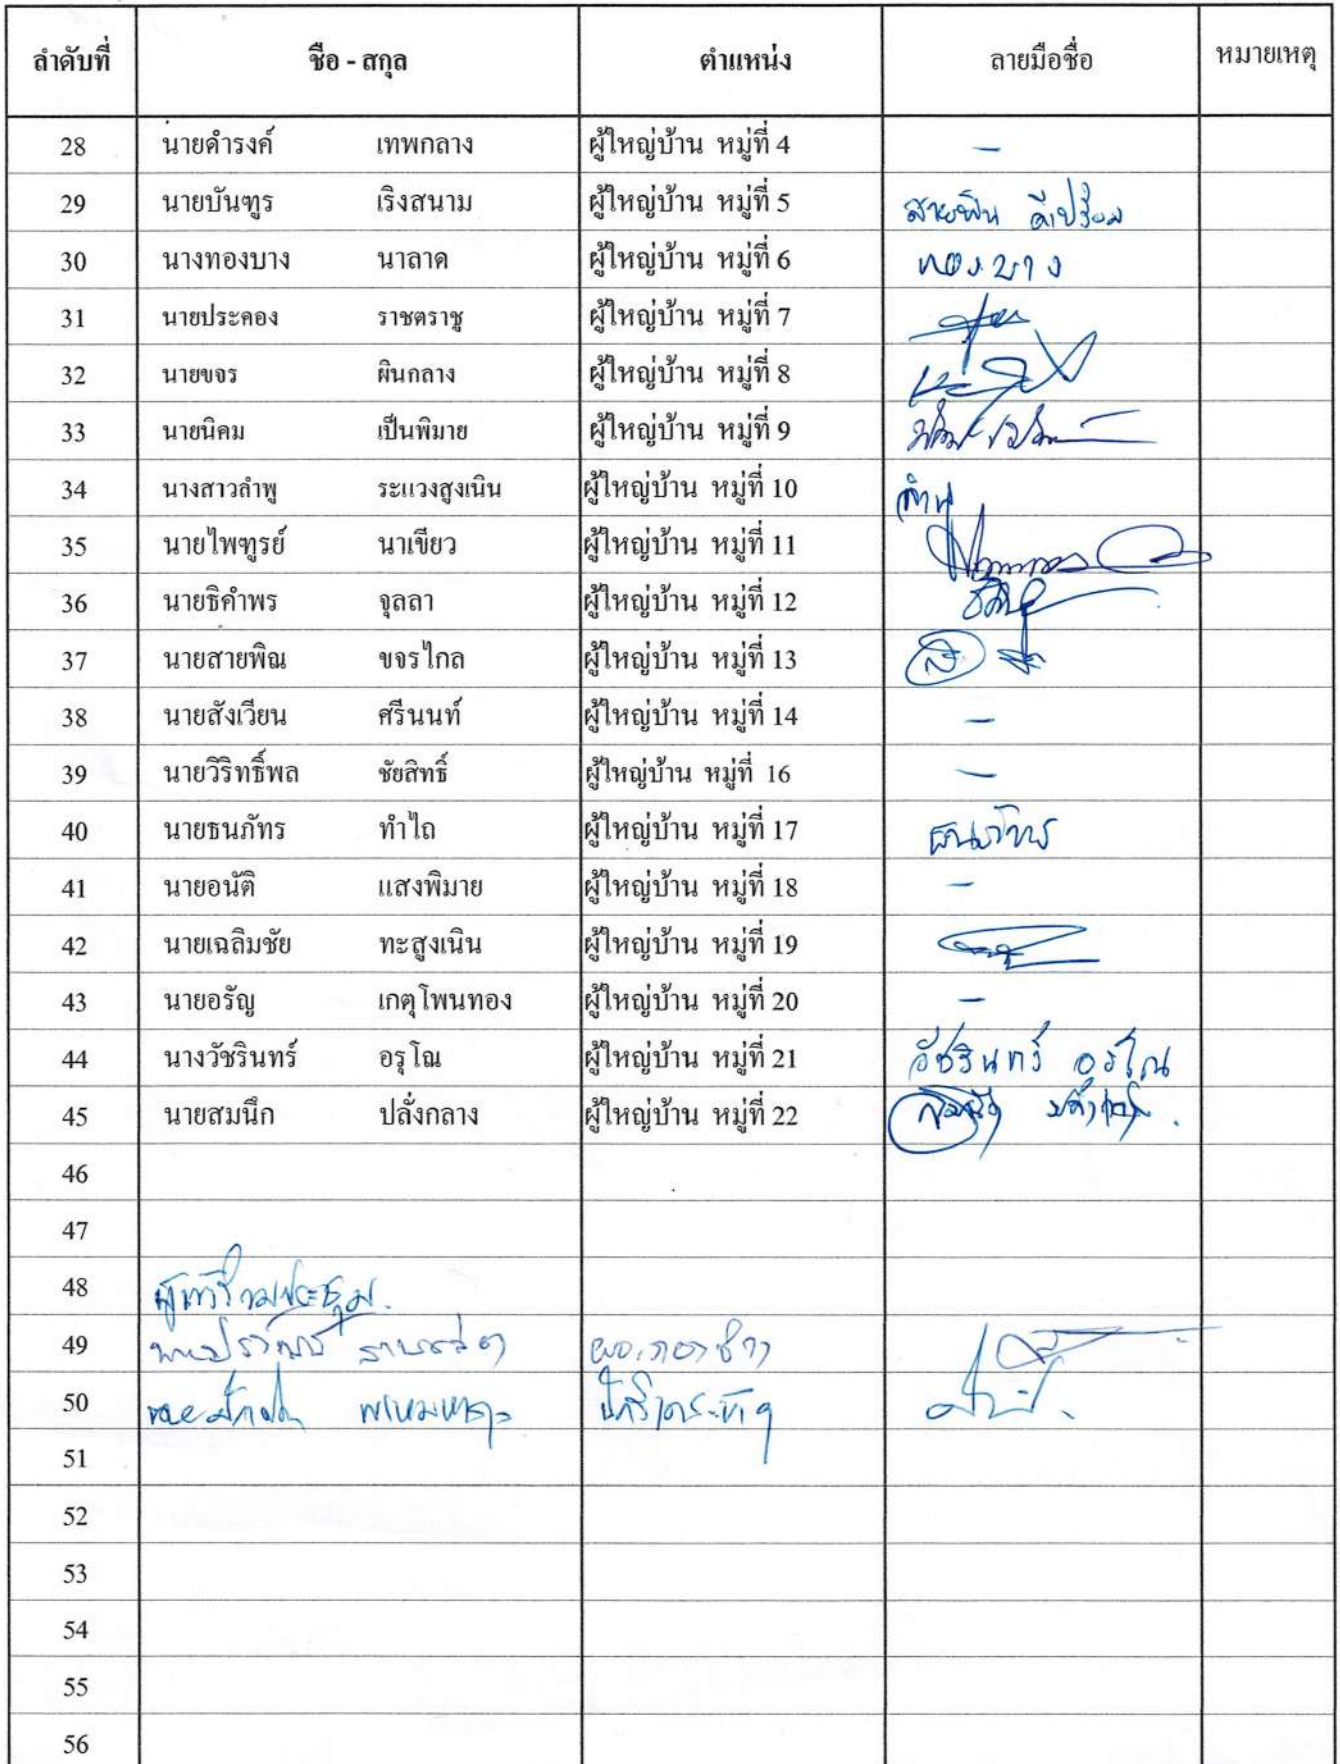 ลำดับที่ ชื่อ - สกุล ตำแหน่ง ลายมือชื่อ หมายเหตุ
28 นายดำรงค์ เทพกลาง ผู้ใหญ่บ้าน หมู่ที่ 4 -
29 นายบันฑูร เริงสนาม ผู้ใหญ่บ้าน หมู่ที่ 5 สายพิน
30 นางทองบาง นาลาด ผู้ใหญ่บ้าน หมู่ที่ 6 ทองบาง
31 นายประคอง ราชตราชู ผู้ใหญ่บ้าน หมู่ที่ 7
32 นายขจร ผินกลาง ผู้ใหญ่บ้าน หมู่ที่ 8
33 นายนิคม เป็นพิมาย ผู้ใหญ่บ้าน หมู่ที่ 9
34 นางสาวลำพู ระแวงสูงเนิน ผู้ใหญ่บ้าน หมู่ที่ 10 ลำพู
35 นายไพฑูรย์ นาเขียว ผู้ใหญ่บ้าน หมู่ที่ 11
36 นายธิคำพร จุลลา ผู้ใหญ่บ้าน หมู่ที่ 12
37 นายสายพิณ ขจรไกล ผู้ใหญ่บ้าน หมู่ที่ 13
38 นายสังเวียน ศรีนนท์ ผู้ใหญ่บ้าน หมู่ที่ 14 -
39 นายวิริทธิ์พล ชัยสิทธิ์ ผู้ใหญ่บ้าน หมู่ที่ 16 -
40 นายธนภัทร ทำไถ ผู้ใหญ่บ้าน หมู่ที่ 17 ธนภัทร
41 นายอนัติ แสงพิมาย ผู้ใหญ่บ้าน หมู่ที่ 18 -
42 นายเฉลิมชัย ทะสูงเนิน ผู้ใหญ่บ้าน หมู่ที่ 19
43 นายอรัญ เกตุโพนทอง ผู้ใหญ่บ้าน หมู่ที่ 20 -
44 นางวัชรินทร์ อรุโณ ผู้ใหญ่บ้าน หมู่ที่ 21 วัชรินทร์ อรุโณ
45 นายสมนึก ปลั่งกลาง ผู้ใหญ่บ้าน หมู่ที่ 22
46
47
48 ผู้เข้าร่วมประชุม.
49
50
51
52
53
54
55
56